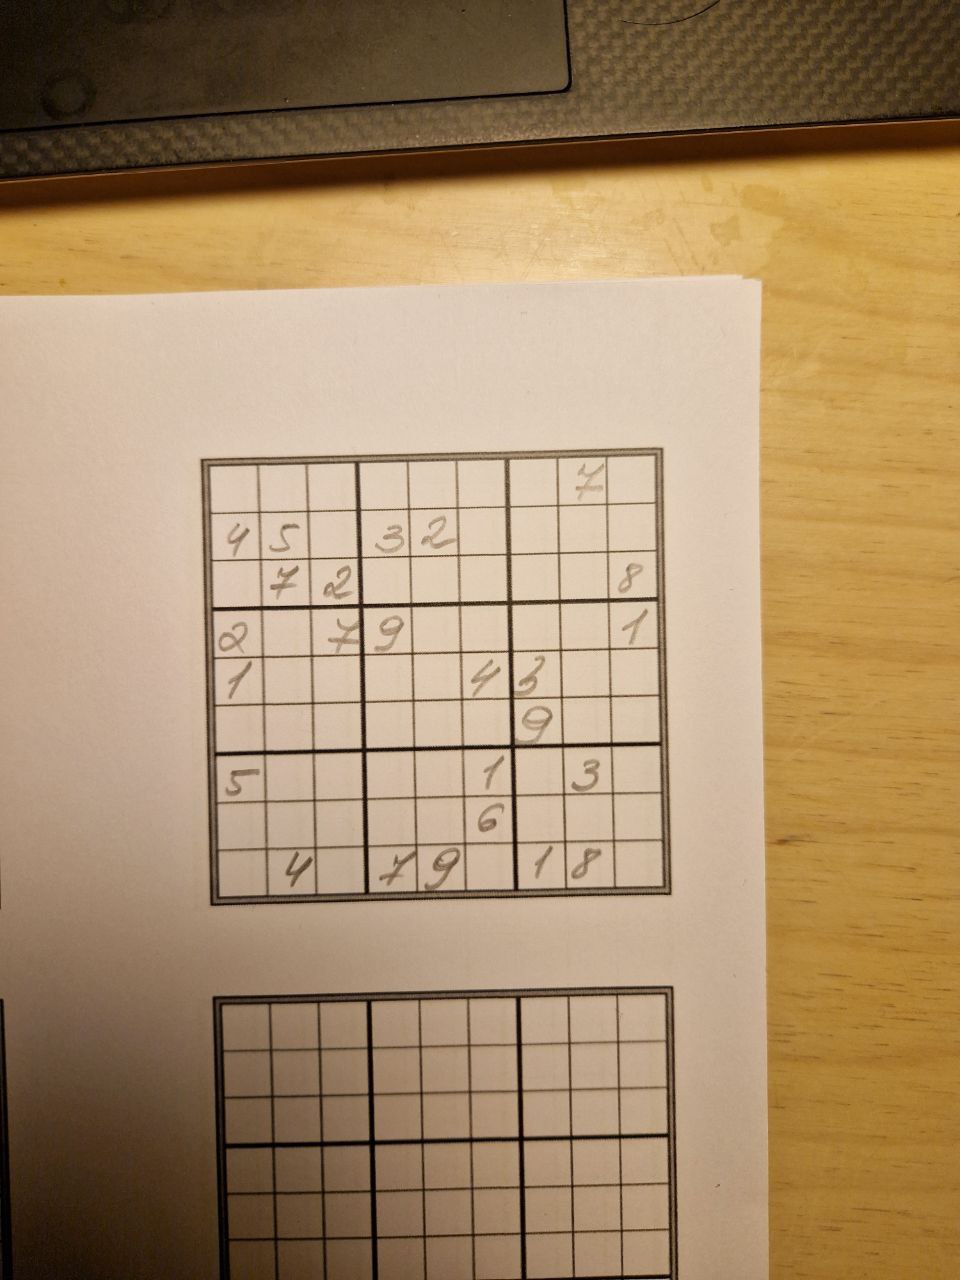 7
4 5 3 2
7 2 8
2 7 9 1
1 4 3
9
5 1 3
6
4 7 9 1 8